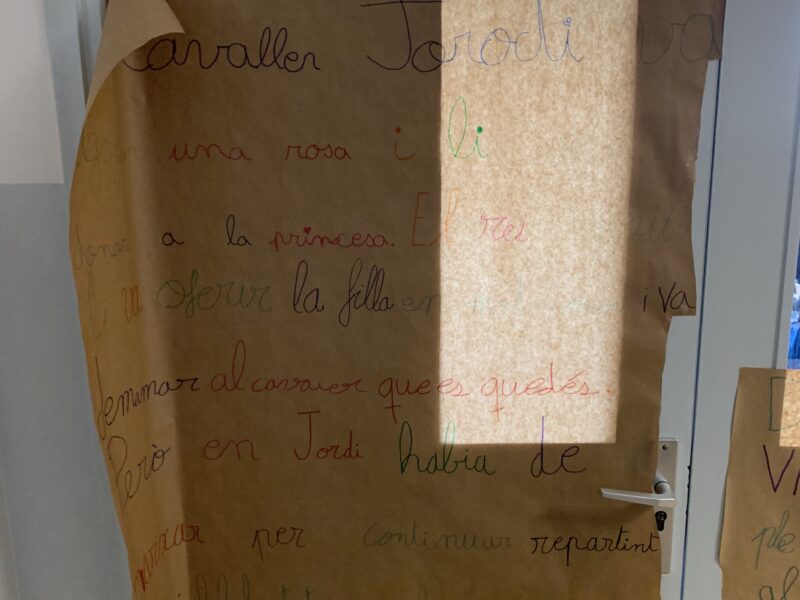 cavaller Jorodi va
una rosa i li
donar a la princesa. El rei
va oferir la filla en i va
demimar al cavaier que es quedés.
Però en Jordi habia de
marxar per continuar repartint